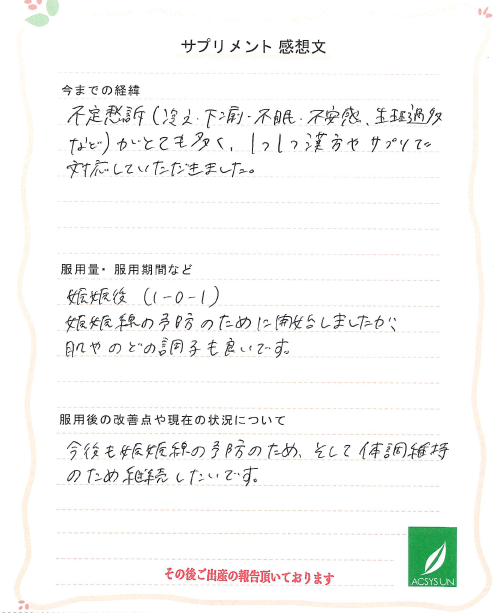 サプリメント 感想文
今までの経緯
不定愁訴(冷え・下痢・不眠・不安感、生理過多
など)がとても多く、1つ1つ漢方やサプリで
対応していただきました。
服用量・服用期間など
妊娠後 (1-0-1)
妊娠線の予防のために開始しましたが、
肌やのどの調子も良いです。
服用後の改善点や現在の状況について
今後も妊娠線の予防のため、そして体調維持
のため継続したいです。
その後ご出産の報告頂いております
ACSYSUN